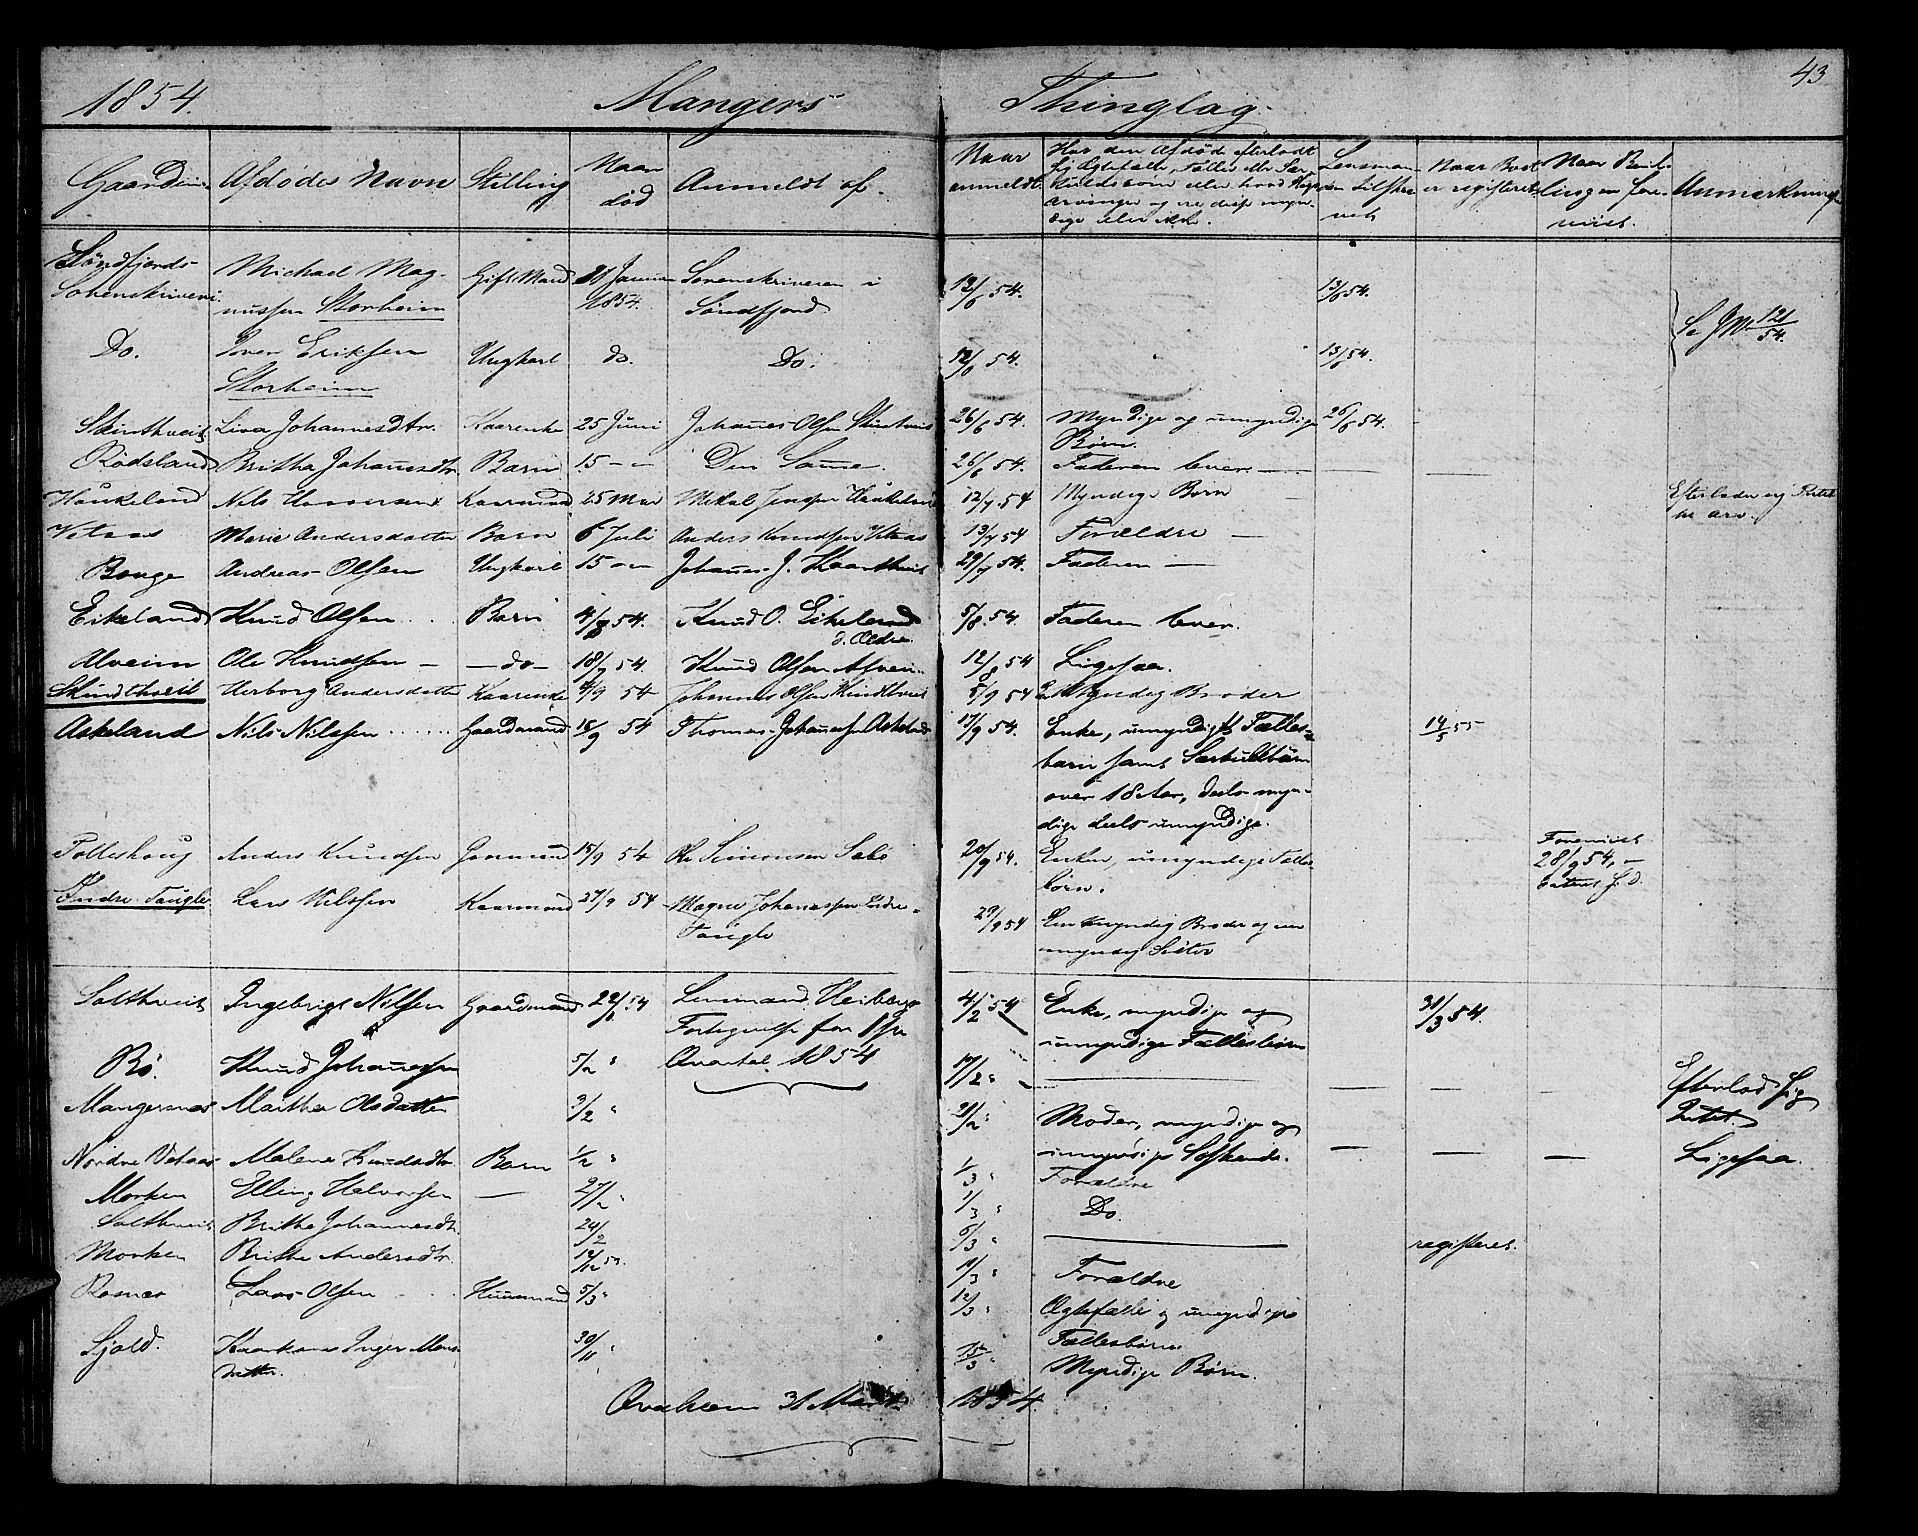 43
1854. Mangers Thinglag.
Gaardens Afdødes Navn Stilling Naar død Anmeldt af. Naar anmeldt. Har den Afdød efterladt sig Ægtefælle, Fælles eller Særkuldsbørn eller hvad Slags Arvinger og ere disse myndige eller ikke. Lensmanden tilskrevet Naar Boet er registeret Naar Anmerkning
Søndfjords Sorenskriveri Michael Magnussen Storheim Gift Mand 21 Januar 1854. Sorenskriveren i Søndfjord 12/6 54. 13/6 54.
Se J No 121/54.
Do. Iver Eriksen Storheim Ungkarl do. Do. 12/6 54. 13/6 54.
Skintveit Liva Johannesdtr. Kaarenke 25 Juni Johannes Olsen Skintveit 26/6 54. Myndige og umyndige Børn. 26/6 54.
Rødsland Britha Johannesdtr Barn 15 — Den Samme. 26/6 54. Faderen lever — — —
Haukeland Nils Kaarmand 25 Mai Mikal Jensen Haukeland 12/7 54 Myndige Børn — Efterlader sig Intet at arv.
Vetaas Marie Andersdatter Barn 6 Juli Anders Knudsen Vetaas 13/7 54 Forældre —
Bouge Andreas Olsen Ungkarl 15 — Johannes J. 29/7 54. Faderen —
Eikeland Knud Olsen Barn 4/8 54. Knud O. Eikeland d. Ældre. 5/8 54. Faderen lever.
Alveim Ole Knudsen — — do — 18/7 54. Knud Olsen 12/8 54 Ligesaa.
Skindtveit Herborg Andersdatter Kaarenke 4/9 54 Johannes Olsen Skindtveit 5/9 54 En Myndig Broder
Askeland Nils Nilssen Gaardmand 15/9 54 Thomas Johannessen Askeland 17/9 54. Enke, umyndigt Fælles-
barn samt Særkuldbørn
over 18 Aar, deels myn-
dige deels umyndige. 14/5 55
Tolleshoug Anders Knudsen Gaarmand 15/9 54 Ole Simonsen Sæbø 20/9 54. Enken, umyndige Fælles børn. 28/9 54, —
Indre Taugle Lars Nilssen Kaarmand 27/9 54 Magne Johannessen Indre Taugle 29/9 54 En Myndig Broder og en myndig Søster
Solthveit Ingebrigt Nilsen Gaardmand 22/1 54 Lensmand Heibergs 4/2 54 Enke, myndige og
umyndige Fællesbørn 31/3 54.
Fortegnelse for 1ste
Qvartal 1854
Bø. Knud Johannessen 5/2 " 17/2 " — — —
Efterlod sig Intet.
Mangersnes Marthe Olsdatter 2/2 " 21/2 " Moder, myndige og
umyndige Søskende. — — — Ligesaa.
Nordre Vetaas Malene Knudsdtr. Barn 1/2 " 1/3 " Forældre
Morken Elling Halvorsen — 27/2 " 1/3 " Do.
Solthveit Brithe Johannesdtr. 24/2 6/3 " — registeret.
Morken Brithe Andersdtr. 14/12 53. 11/3 " Forældre
Rosnes Lars Olsen Huusmand 5/3 " 12/3 " Ægtefælle og umyndige
Fællesbørn
Sjold. Kaarkone Inger Mons-
datter. 30/11 " 15/3 " Myndige Børn.
Qvalheim 31 Marts 1854.